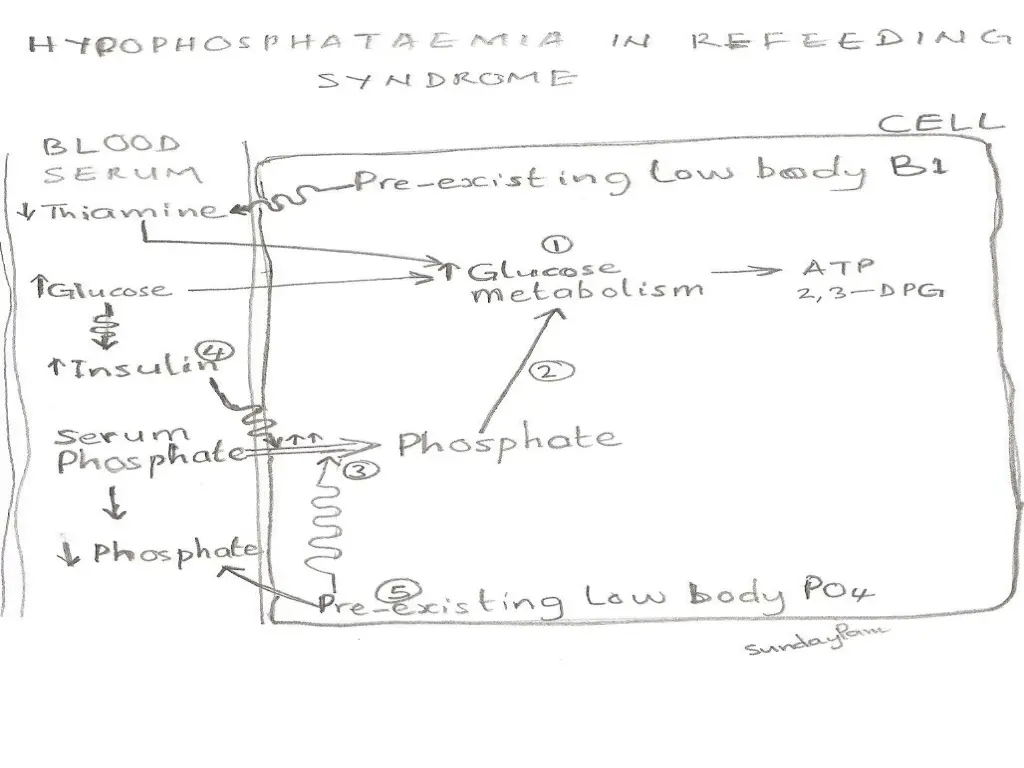 HYPOPHOSPHATAEMIA IN REFEEDING
SYNDROME
CELL
BLOOD
SERUM
Pre-existing Low body B1
↓Thiamine
①
↑Glucose
↑Glucose
metabolism
ATP
2,3-DPG
④
↑Insulin
②
Serum
Phosphate
↑↑
Phosphate
③
↓ Phosphate
⑤
Pre-existing Low body PO4
SundayPam